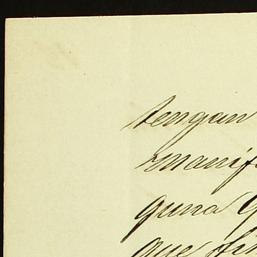 tengan
manif
guna
que